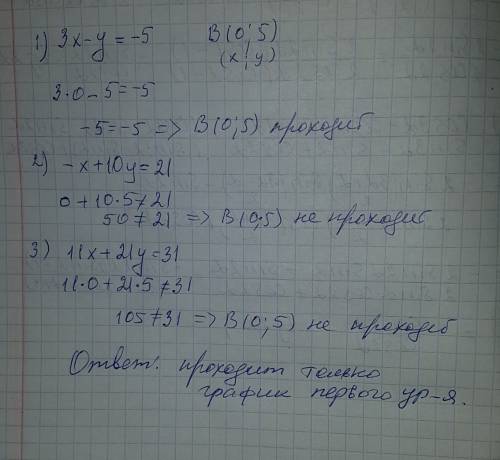 1) 3x-y=-5 B(0;5)
(x;y)
3·0-5=-5
-5=-5 => B(0;5) проходит
2) -x+10y=21
0+10·5≠21
50≠21 => B(0;5) не проходит
3) 11x+21y=31
11·0+21·5≠31
105≠31 => B(0;5) не проходит
Ответ: проходит только
график первого ур-я.